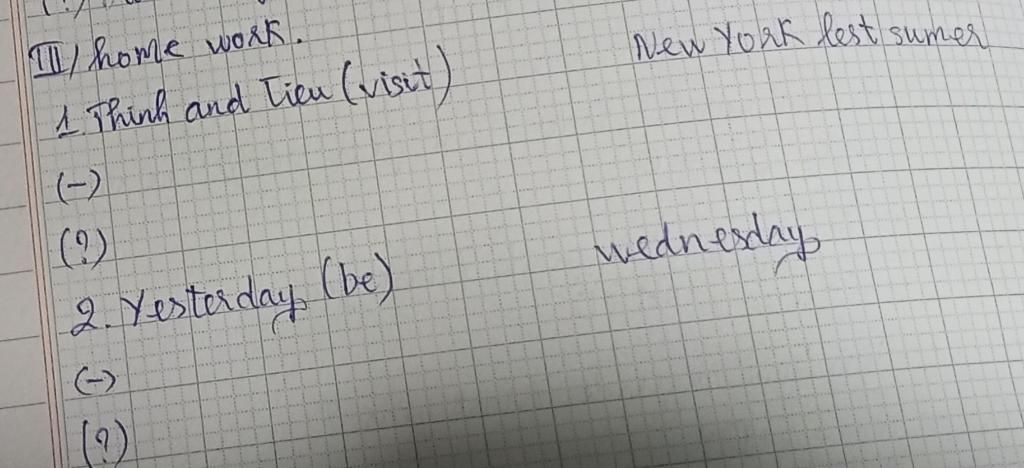 III/ home work.
1. Thinh and Tieu (visit) New York lest sumer
(-)
(?)
2. Yesterday (be) wednesday
(-)
(?)